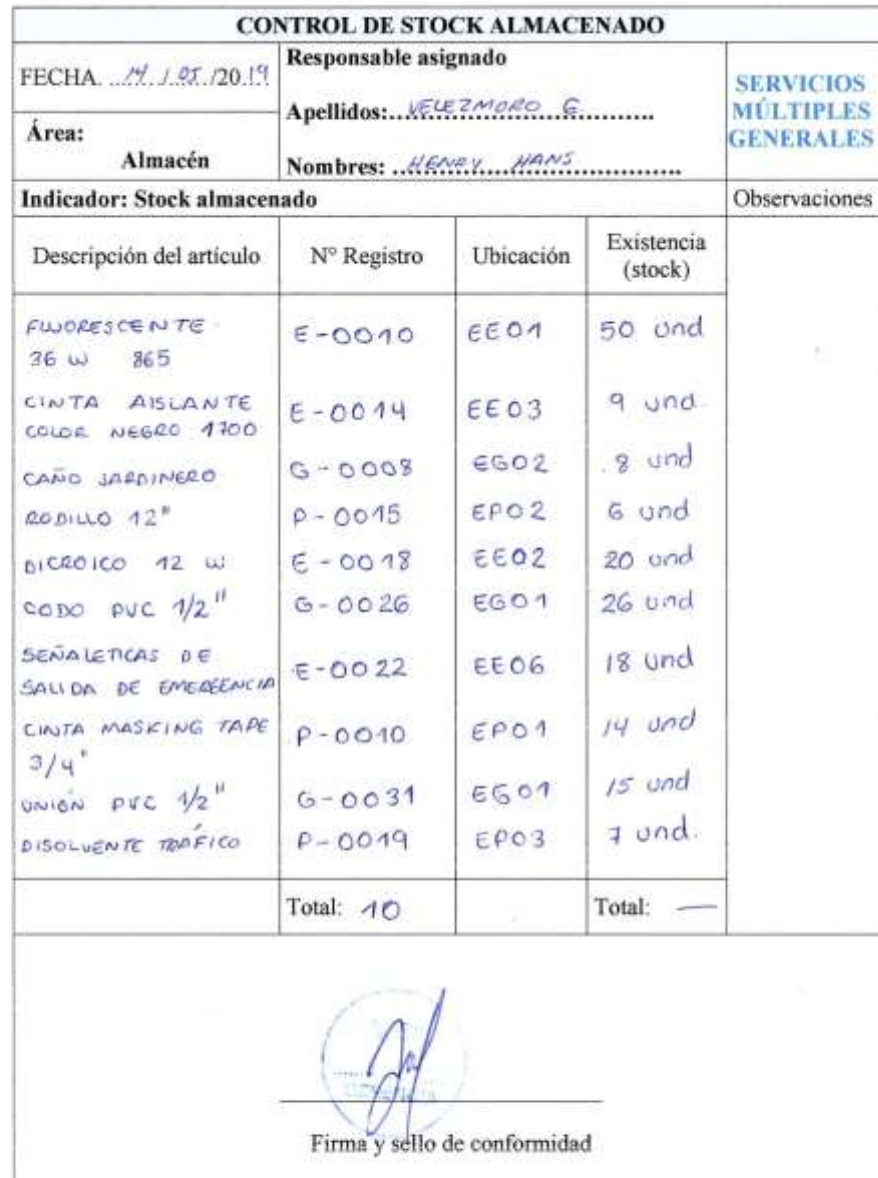 CONTROL DE STOCK ALMACENADO
FECHA. 14 / 05 /2019
Responsable asignado
Apellidos: VELEZMORO G.
Área:
Almacén
Nombres: HENRY HANS
SERVICIOS
MÚLTIPLES
GENERALES
Indicador: Stock almacenado
Observaciones
Descripción del artículo N° Registro Ubicación Existencia (stock)
FLUORESCENTE
36 W 865 E-0010 EE01 50 und
CINTA AISLANTE
COLOR NEGRO 1700 E-0014 EE03 9 und.
CAÑO JARDINERO G-0008 EG02 8 und
RODILLO 12" P-0015 EP02 6 und
DICROICO 12 W E-0018 EE02 20 und
CODO PVC 1/2" G-0026 EG01 26 und
SEÑALETICAS DE
SALIDA DE EMERGENCIA E-0022 EE06 18 und
CINTA MASKING TAPE
3/4" P-0010 EP01 14 und
UNIÓN PVC 1/2" G-0031 EG01 15 und
DISOLVENTE TRÁFICO P-0019 EP03 7 und.
Total: 10 Total: —
Firma y sello de conformidad